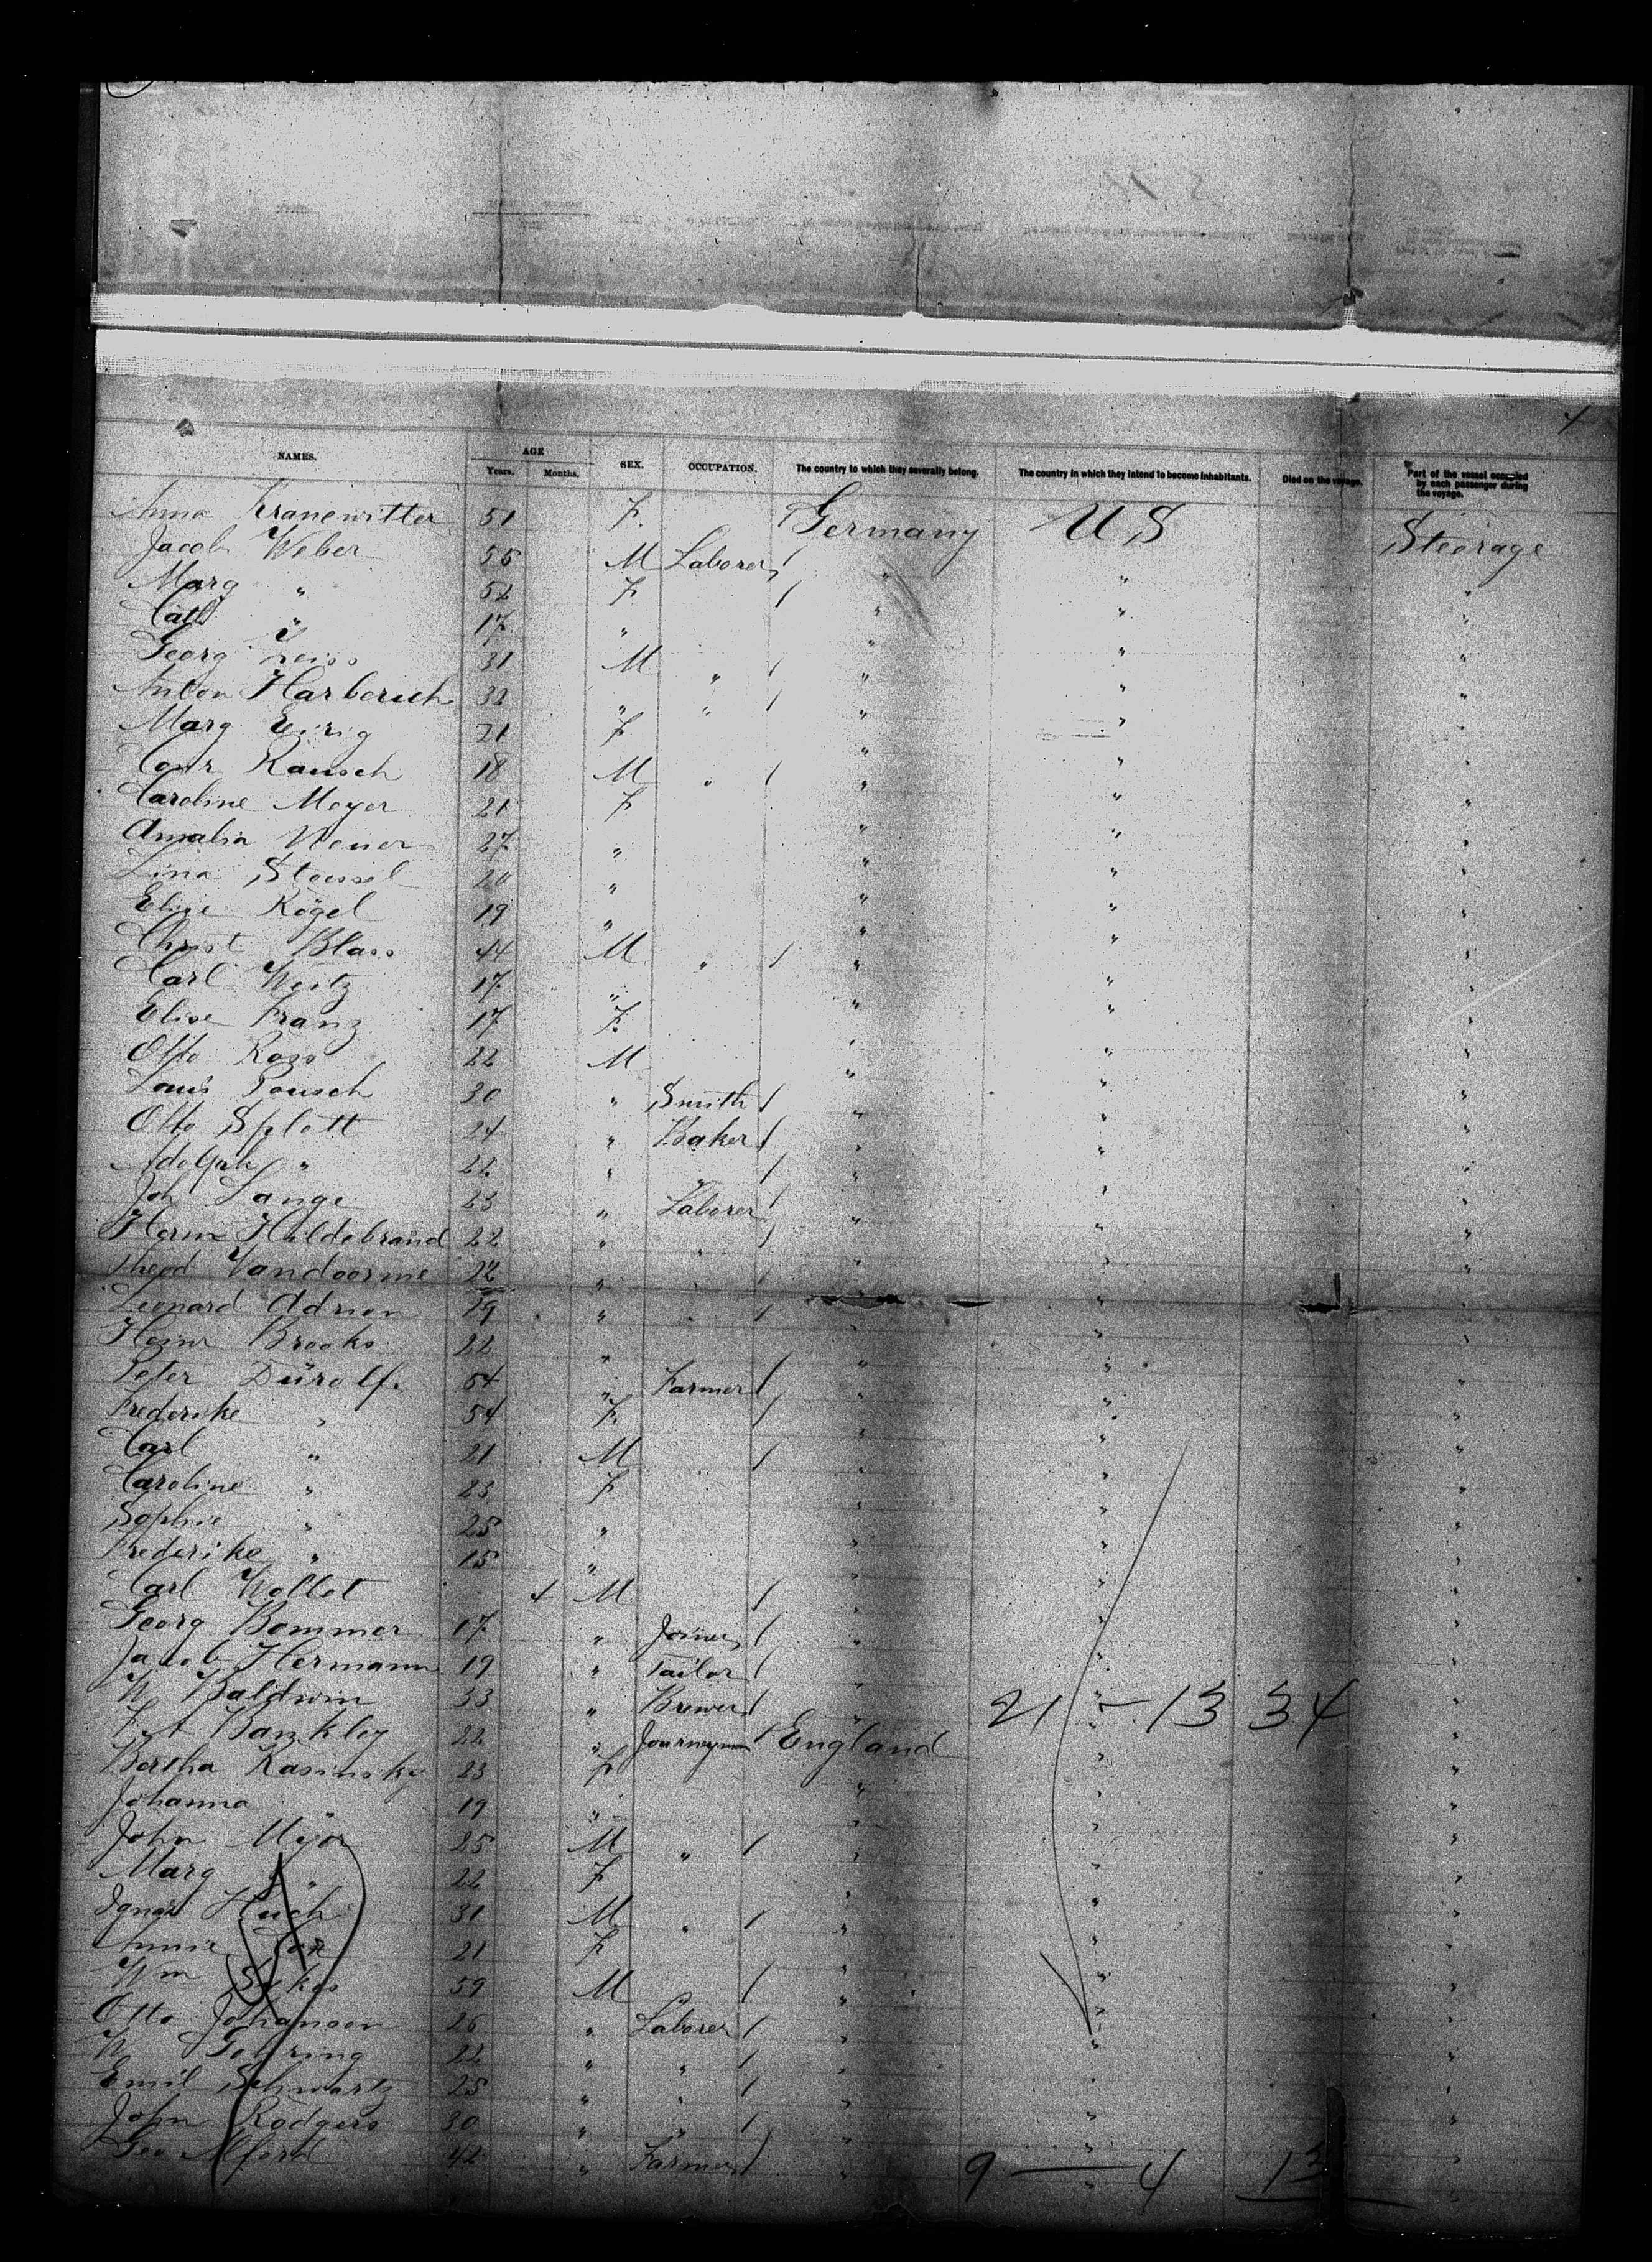 NAMES. AGE Years. Months. SEX. OCCUPATION. The country to which they severally belong. The country in which they intend to become inhabitants. Died on the voyage. Part of the vessel occupied by each passenger during the voyage.
Anna Kranewitter 51 F. Germany U.S. Steerage
Jacob Weber 55 M Laborer / " " "
Marg " 52 F. / " " "
Cath " 17 " " " "
Georg 31 M " / " " "
Anton Harberich 32 " " / " " "
Marg 21 F " " "
Conr Rausch 18 M " / " " "
Caroline Meyer 21 F " " "
Amalia 27 " " " "
Lina Stoessel 20 " " " "
Elise Kögel 19 " " " "
Christ Blass 44 M " / " " "
Carl Weitz 17 " " " "
Elise Franz 17 F. " " "
Otto Ross 22 M " " "
Louis Pausch 30 " Smith / " " "
Otto Splett 24 " Baker / " " "
Adolph " 22 " " / " " "
Joh Lange 23 " Laborer / " " "
Herm Hildebrand 22 " " / " " "
Theod Vandoorme 22 " " / " " "
Leonard Adrion 29 " " / " " "
Heinr Brooks 22 " / " " "
Peter Dürolf. 64 " Farmer / " " "
Frederike " 54 F. / " " "
Carl " 21 M / " " "
Caroline " 23 F " " "
Sophie " 25 " " " "
Frederike " 15 " " " "
Carl Wollet M / " " "
Georg Bommer 17 " Joiner / " " "
Jacob Hermann 19 " Tailor / " " "
W Baldwin 33 " Brewer / " " "
21 — 13 34
Bankley 22 " Journeyman / England " "
Bertha Kasinsky 23 F " " "
Johanna " 19 " " " "
John 25 M " / " " "
Marg " 22 F " " "
Ignaz 31 M " / " " "
Annie 21 F " " "
Wm Sykes 59 M / " " "
Otto Johanson 26 " Laborer / " " "
W Gohring 22 " " / " " "
Emil Schwartz 25 " " / " " "
John Rodgers 30 " " / " " "
Geo Alford 42 " Farmer / " " "
9 — 4 13